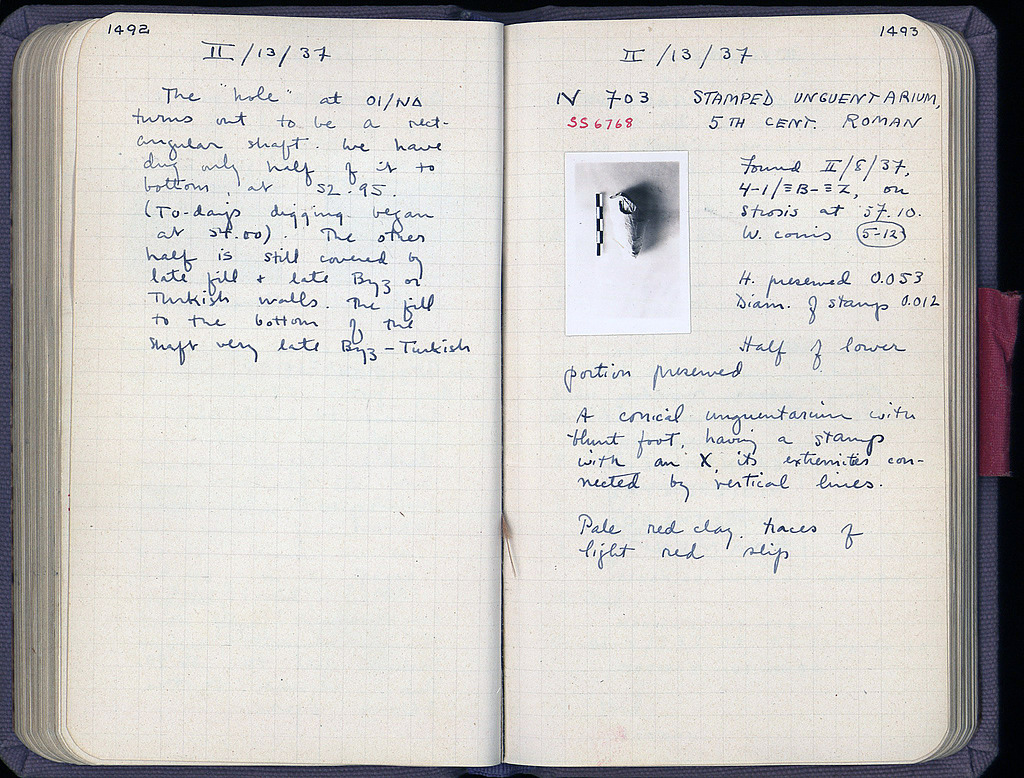 1492
II/13/37
The "hole" at 01/NΔ
turns out to be a rect-
angular shaft. We have
dug only half of it to
bottom, at 52.95.
(To-day's digging began
at 54.00). The other
half is still covered by
late fill + late Byz or
Turkish walls. The fill
to the bottom of the
shaft very late Byz-Turkish
1493
II/13/37
N 703 STAMPED UNGUENTARIUM,
SS6768 5TH CENT. ROMAN
Found II/8/37,
4-1/ΞB-ΞZ, on
Strosis at 57.10.
W. coins 5-12
H. preserved 0.053
Diam. of stamp 0.012
Half of lower
portion preserved
A conical unguentarium with
blunt foot, having a stamp
with an X, its extremities con-
nected by vertical lines.
Pale red clay. traces of
light red slip